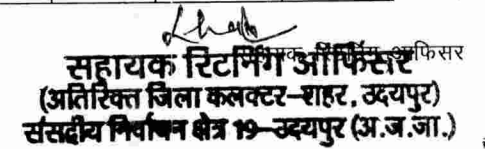 सहायक रिटर्निंग ऑफिसर
(अतिरिक्त जिला कलक्टर–शहर, उदयपुर)
संसदीय निर्वाचन क्षेत्र 19–उदयपुर (अ.ज.जा.)